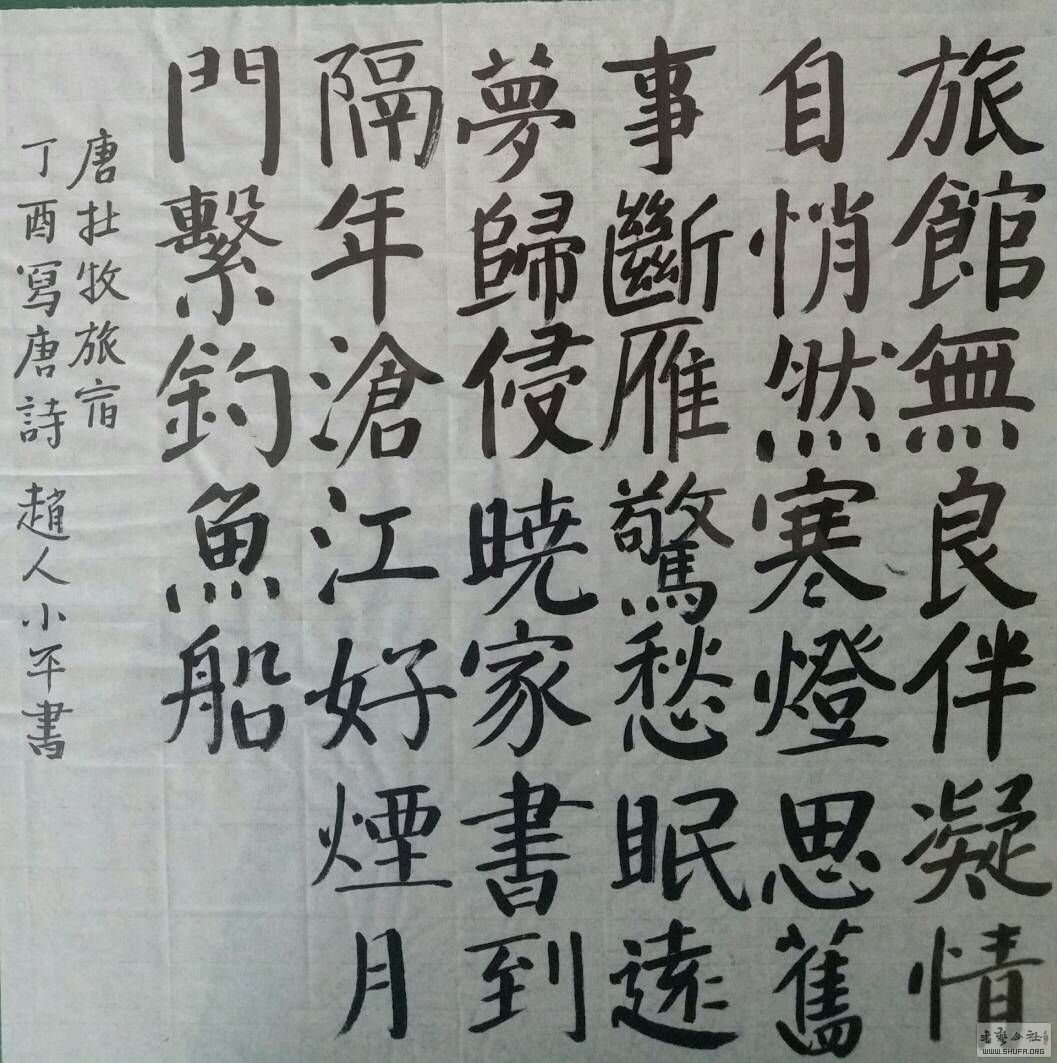 旅館無良伴凝情
自悄然寒燈思舊
事斷雁驚愁眠遠
夢歸侵曉家書到
隔年滄江好煙月
門繫釣魚船
唐杜牧旅宿
丁酉寫唐詩 趙人小平書
WWW.SHUFA.ORG